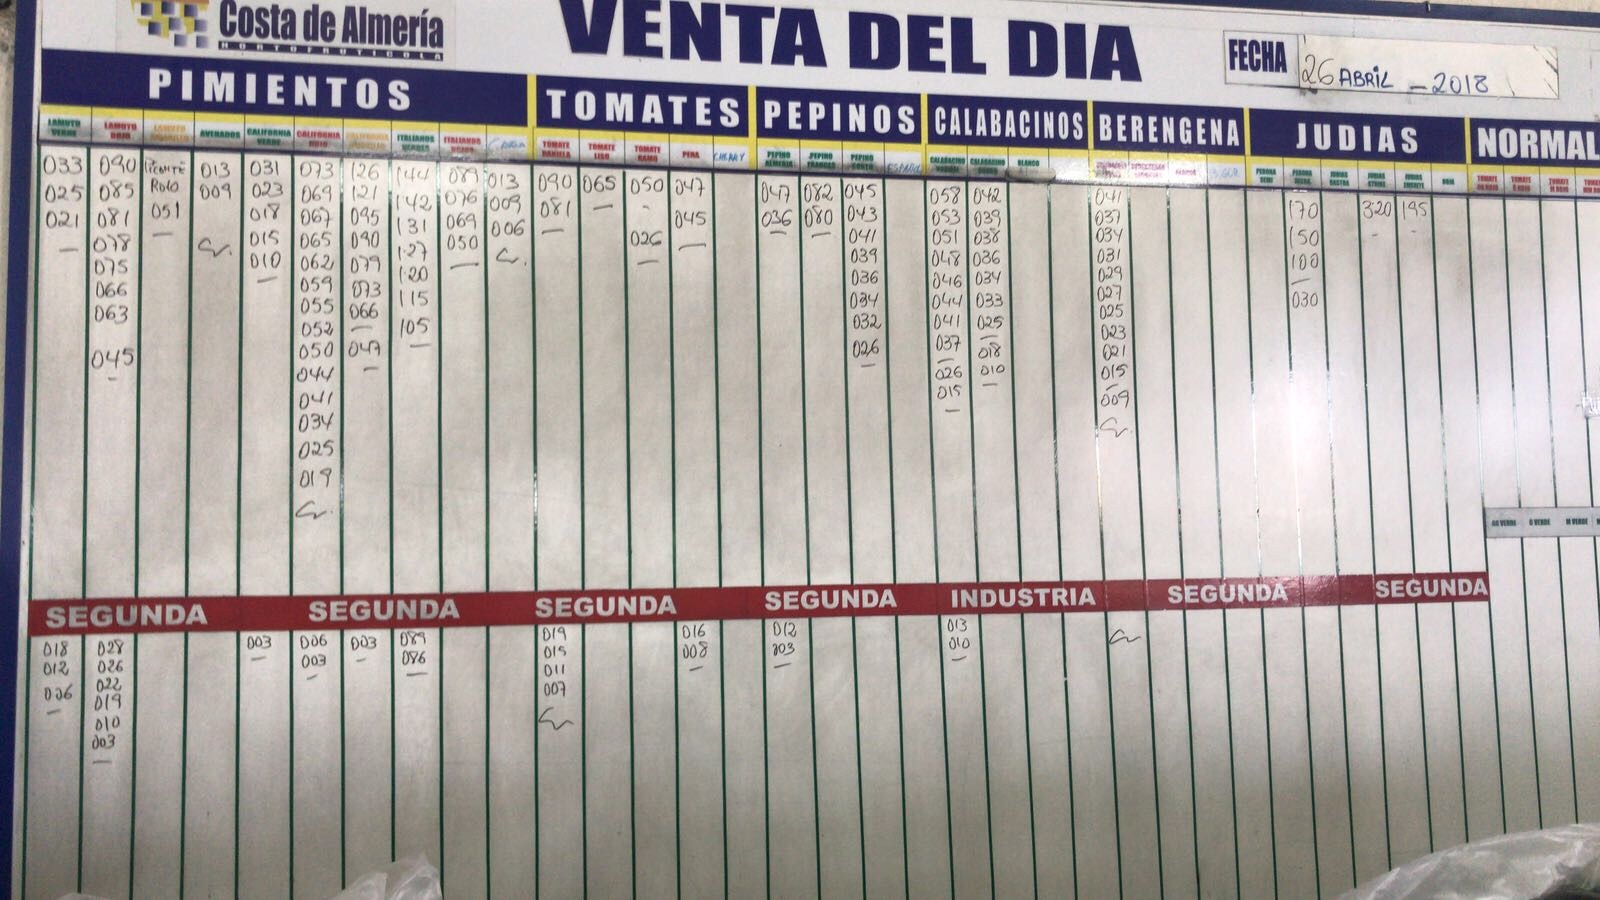 Costa de Almería
HORTOFRUTICOLA
VENTA DEL DIA
FECHA
26 ABRIL - 2018
PIMIENTOS
TOMATES
PEPINOS
CALABACINOS
BERENGENA
JUDIAS
NORMAL
LAMUYO VERDE
LAMUYO ROJO
ASURADOS
CALIFORNIA VERDE
CALIFORNIA ROJO
ITALIANOS VERDES
ITALIANOS ROJOS
TOMATE DANIELA
TOMATE LISO
TOMATE RAMO
PERA
CHERRY
PEPINO ALMERIA
PEPINO FRANCES
PEPINO CORTO
ESPAÑOL
BLANCO
033 090 PICANTE 013 031 073 126 144 089 013 090 065 050 047 047 082 045 058 042 041 170 320 195
025 085 ROJO 009 023 069 121 142 076 009 081 045 036 080 043 053 039 037 150
021 081 051 018 067 095 131 069 006 026 041 051 038 034 100
078 015 065 090 127 050 039 048 036 031 030
075 010 062 079 120 036 046 034 029
066 059 073 115 034 044 033 027
063 055 066 105 032 041 025 025
045 052 047 026 037 018 023
050 026 010 021
044 015 015
041 009
034
025
019
SEGUNDA
SEGUNDA
SEGUNDA
SEGUNDA
INDUSTRIA
SEGUNDA
SEGUNDA
GG VERDE
G VERDE
M VERDE
018 028 003 006 003 089 019 016 012 013
012 026 003 086 015 008 003 010
006 022 011
019 007
010
003